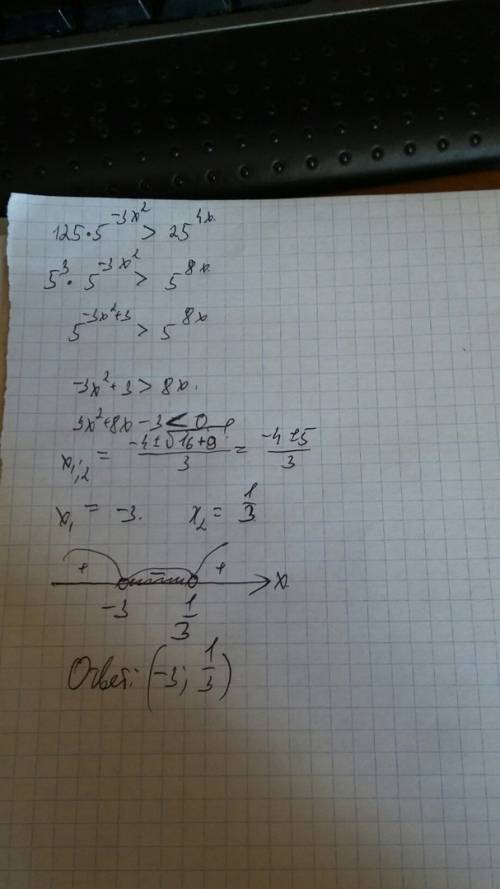 125·5^{-3x²} > 25^{4x}
5³·5^{-3x²} > 5^{8x}
5^{-3x²+3} > 5^{8x}
-3x²+3 > 8x.
3x²+8x-3 < 0
x₁;₂ = (-4±√(16+9))/3 = (-4±5)/3
x₁ = -3. x₂ = 1/3
+ - + x
-3 1/3
Ответ: (-3; 1/3)